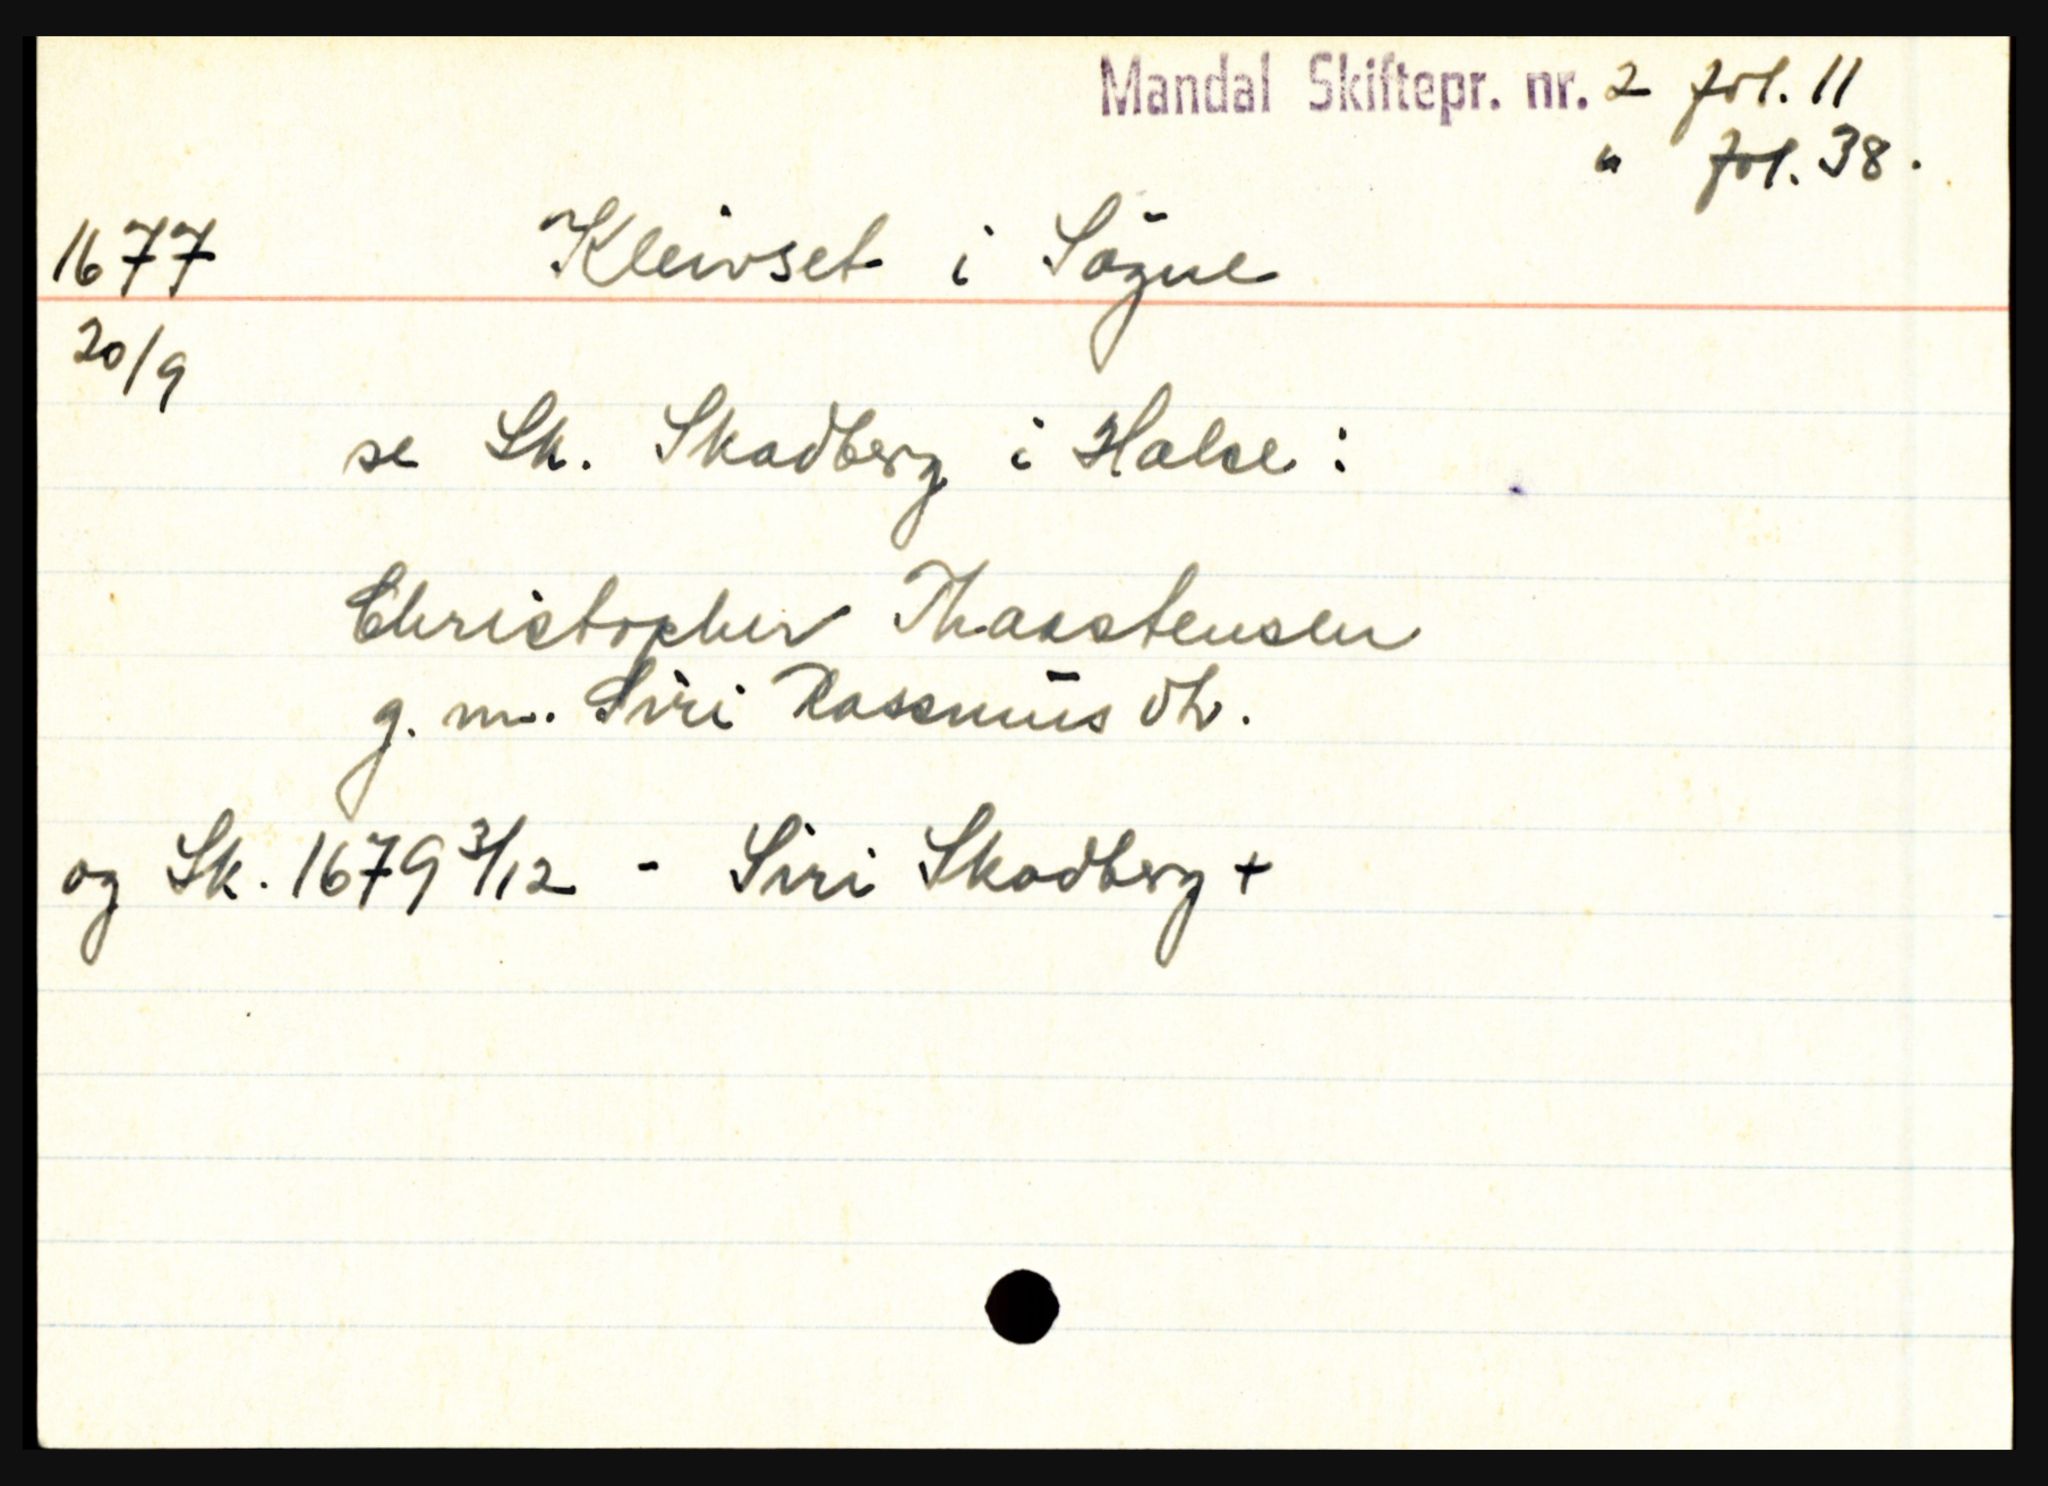 Mandal Skiftepr. nr. 2 fol. 11
" fol. 38.
1677 Kleivset i Søgne
20/9
se Sk. Skadberg i Halse:
Christopher Thaastensen
g. m. Siri Rassmus dtr.
og Sk. 1679 3/12 - Siri Skadberg +